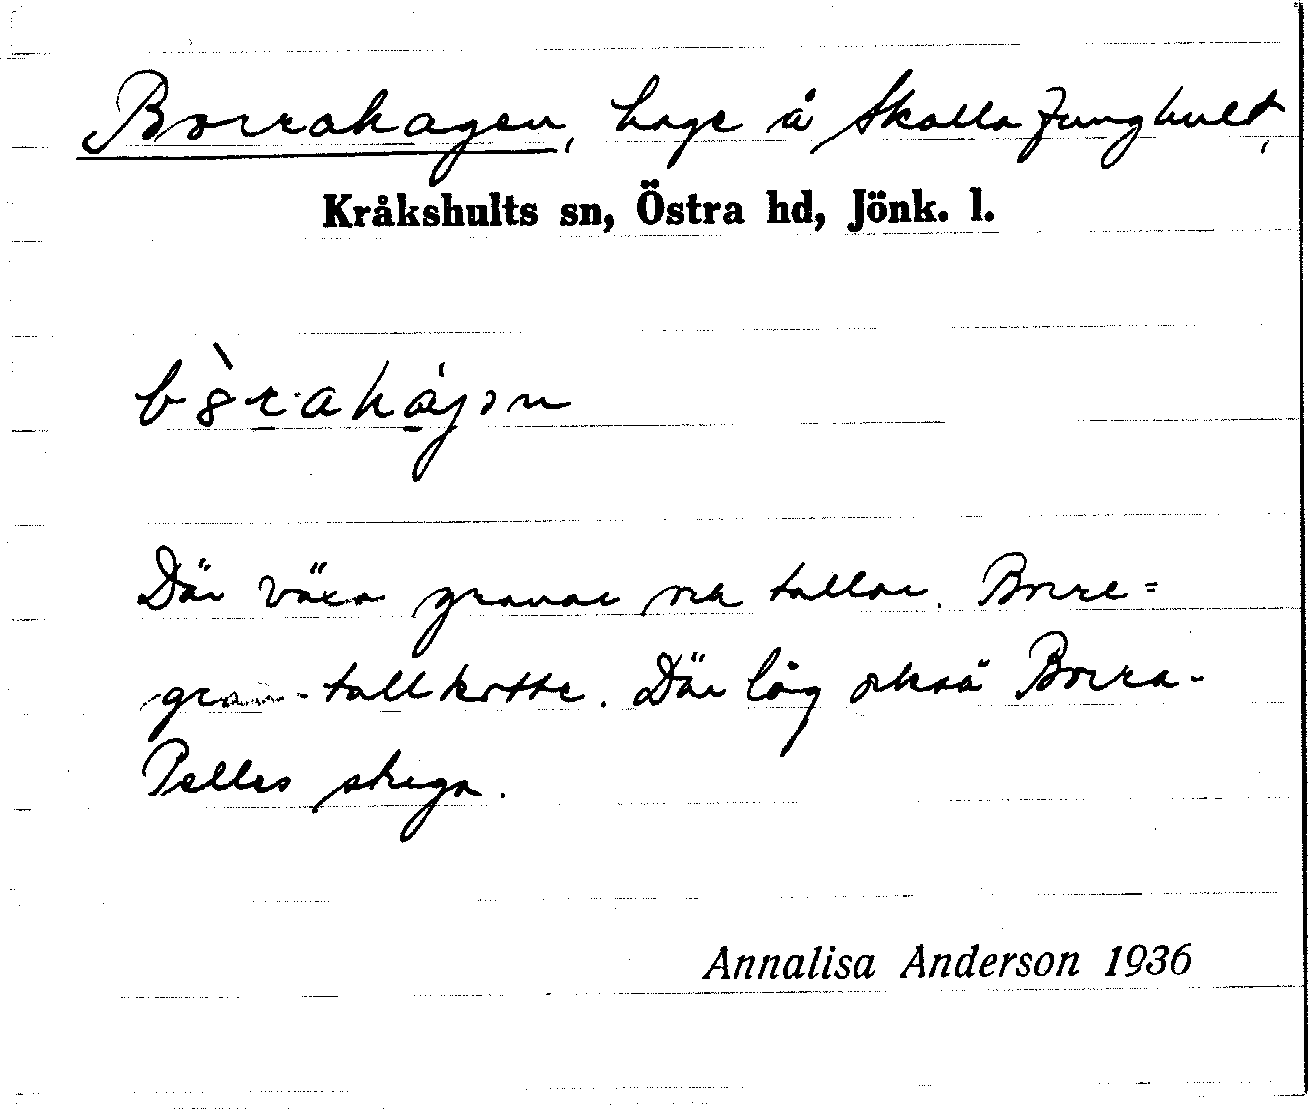 Borrahagen, hage å Skälla Ljunghult,
Kråkshults sn, Östra hd, Jönk. l.
b8̀rahág̵ən
Där växa granar och tallar. Borre=
gran-tallkotte. Där låg också Borra-
Pelles stuga.
Annalisa Anderson 1936